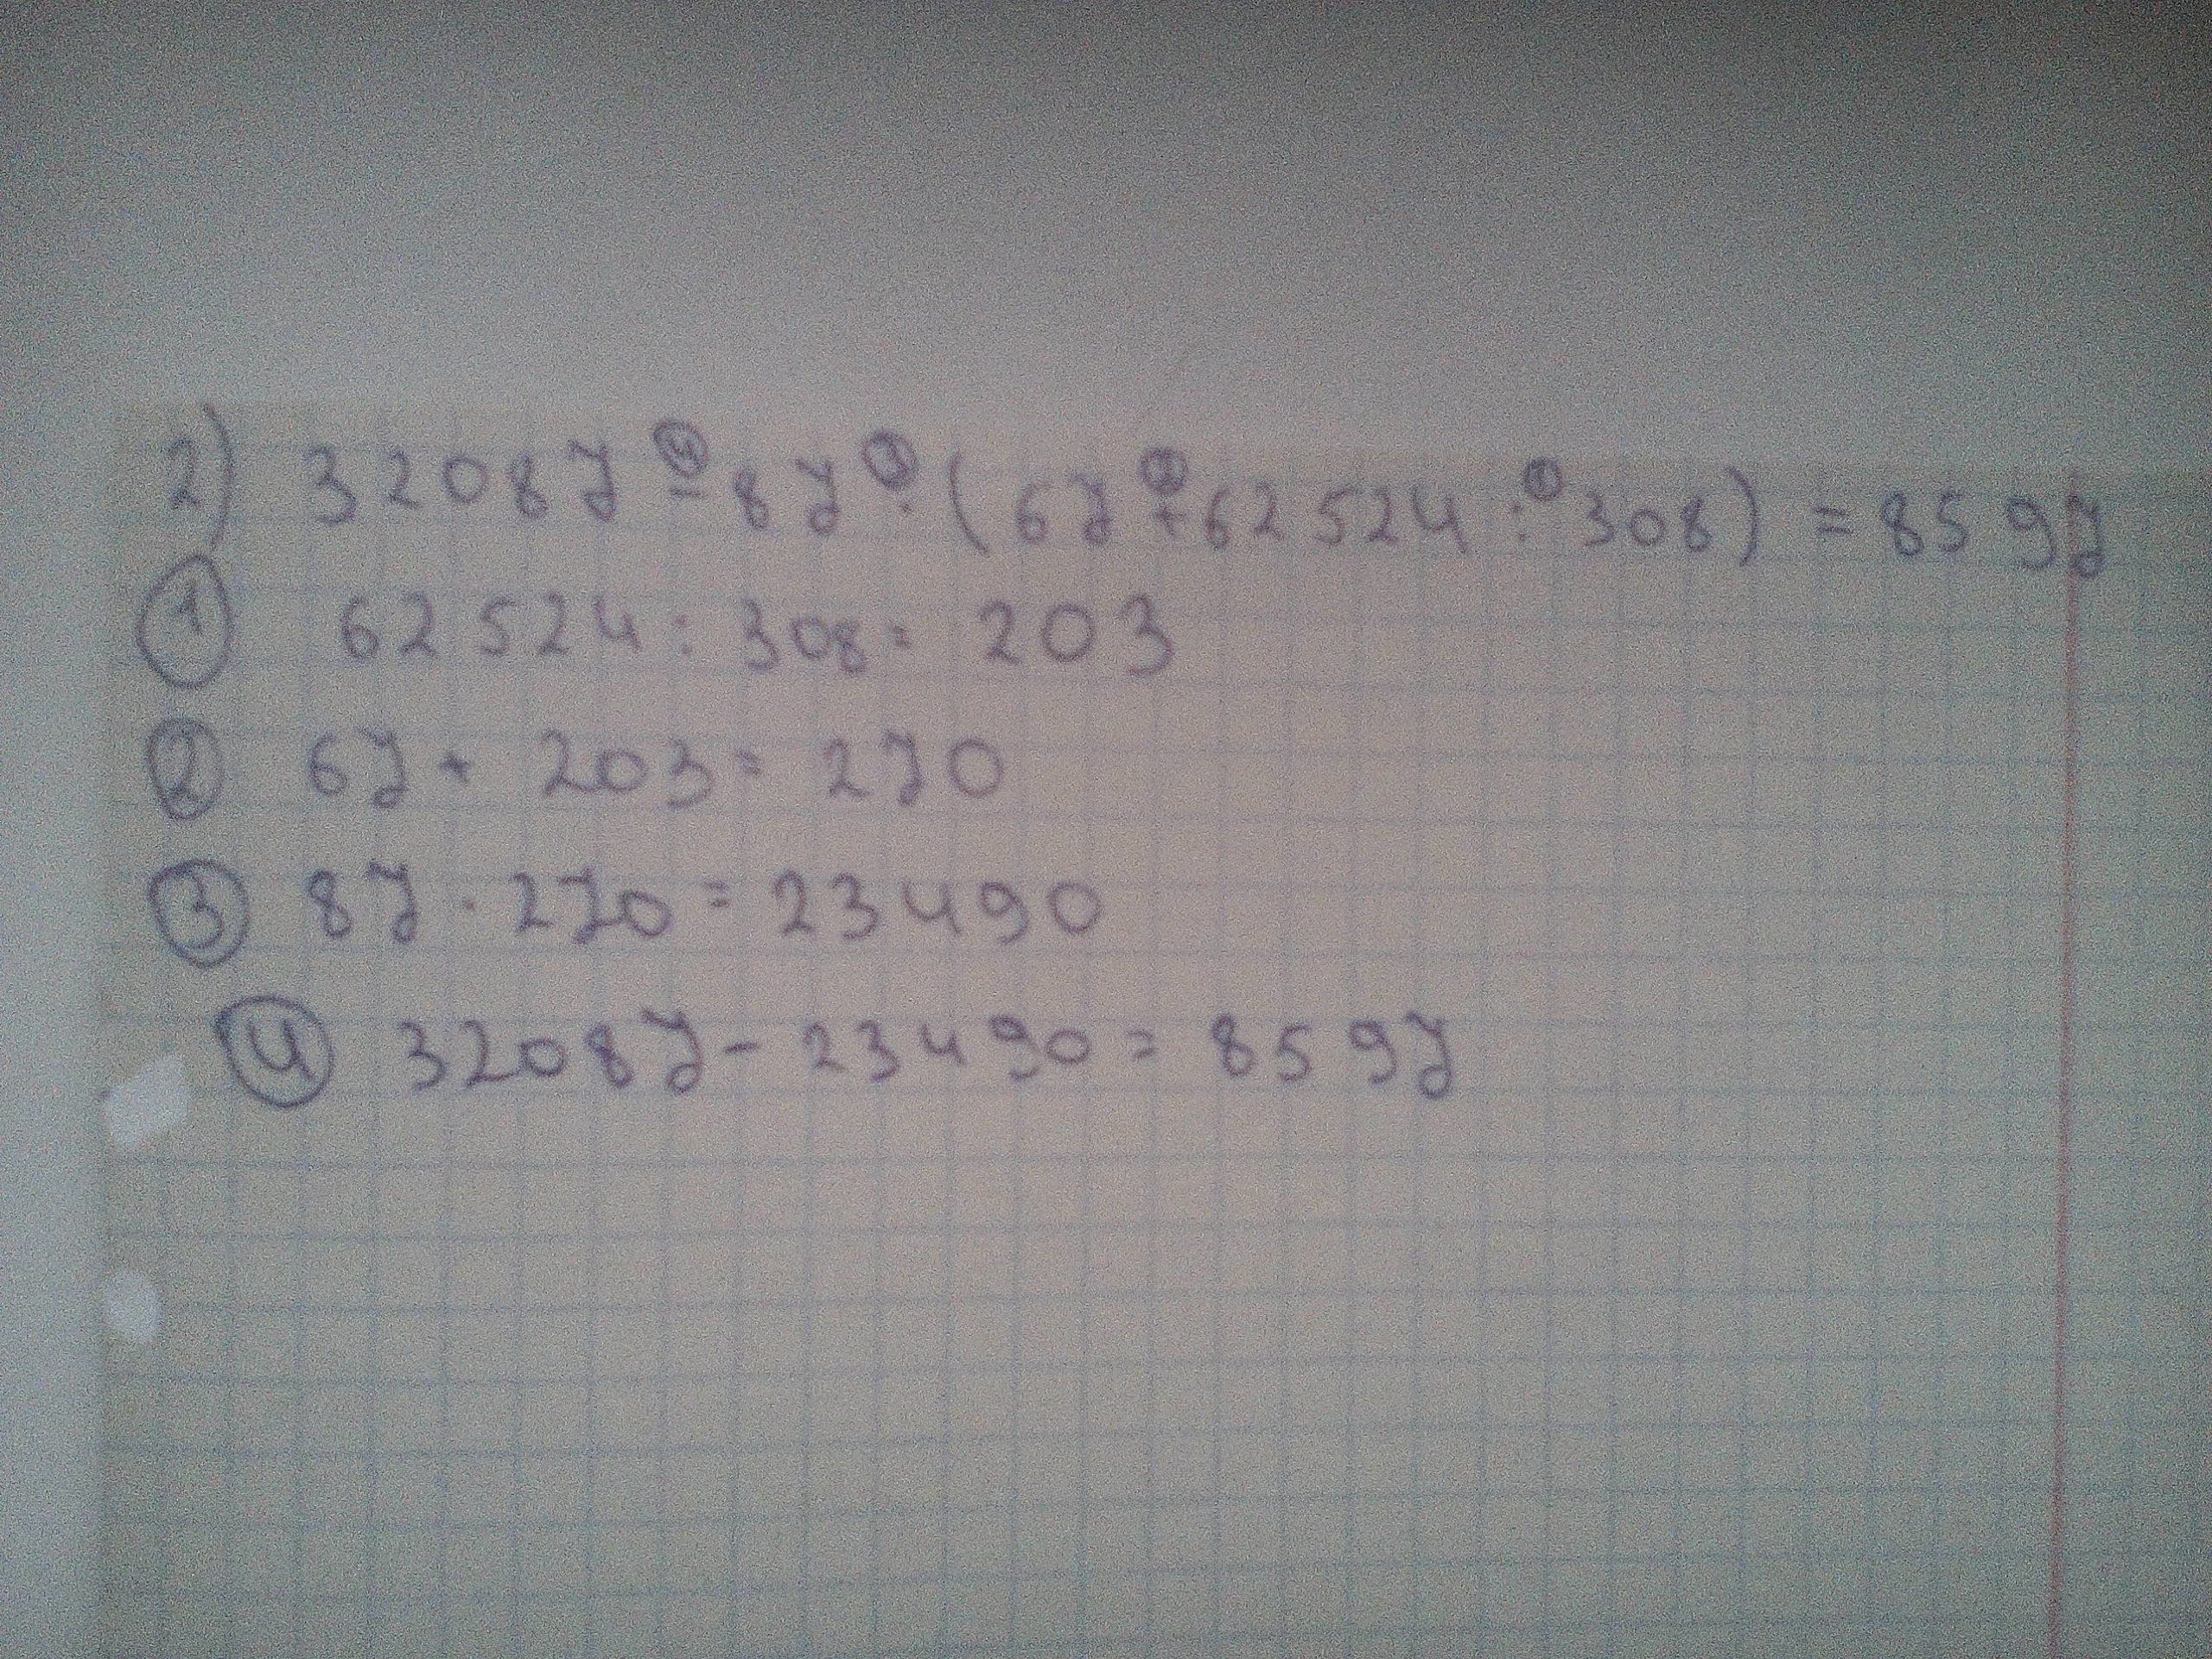 2) 32087 ④ - 87 ③ · (67 ② + 62524 : ① 308) = 8597
① 62524 : 308 = 203
② 67 + 203 = 270
③ 87 · 270 = 23490
④ 32087 - 23490 = 8597